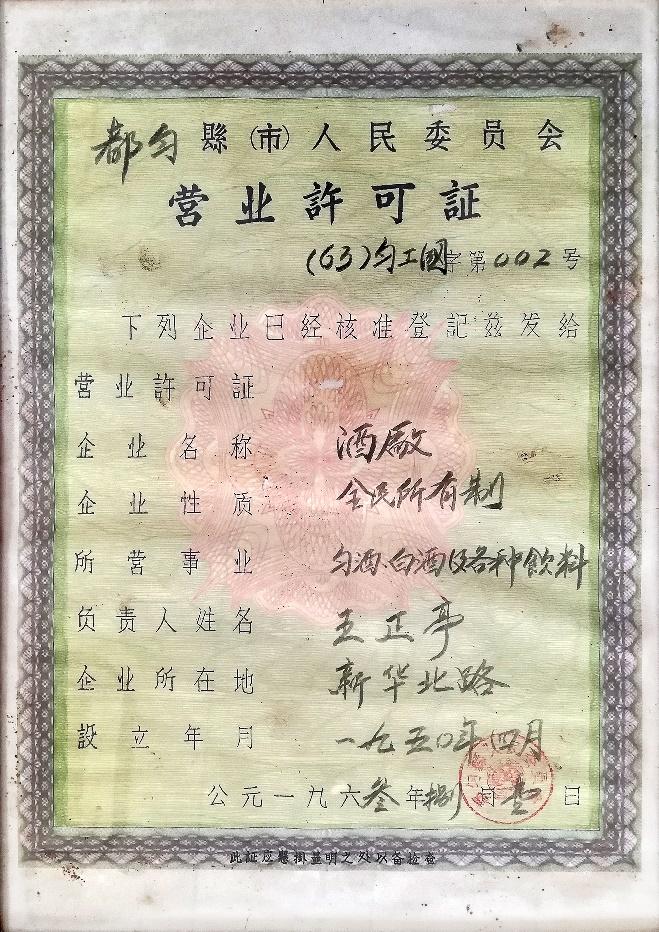 都匀縣(市)人民委员会
营业許可証
(63)匀工國字第002号
下列企业已经核准登記兹发给
营业許可証
企业名称 酒廠
企业性质 全民所有制
所营事业 匀酒、白酒及各种飲料
负责人姓名 王正亭
企业所在地 新华北路
設立年月 一九五〇年四月
公元一九六叁年捌月壹日
此証应懸掛显明之处以备检查